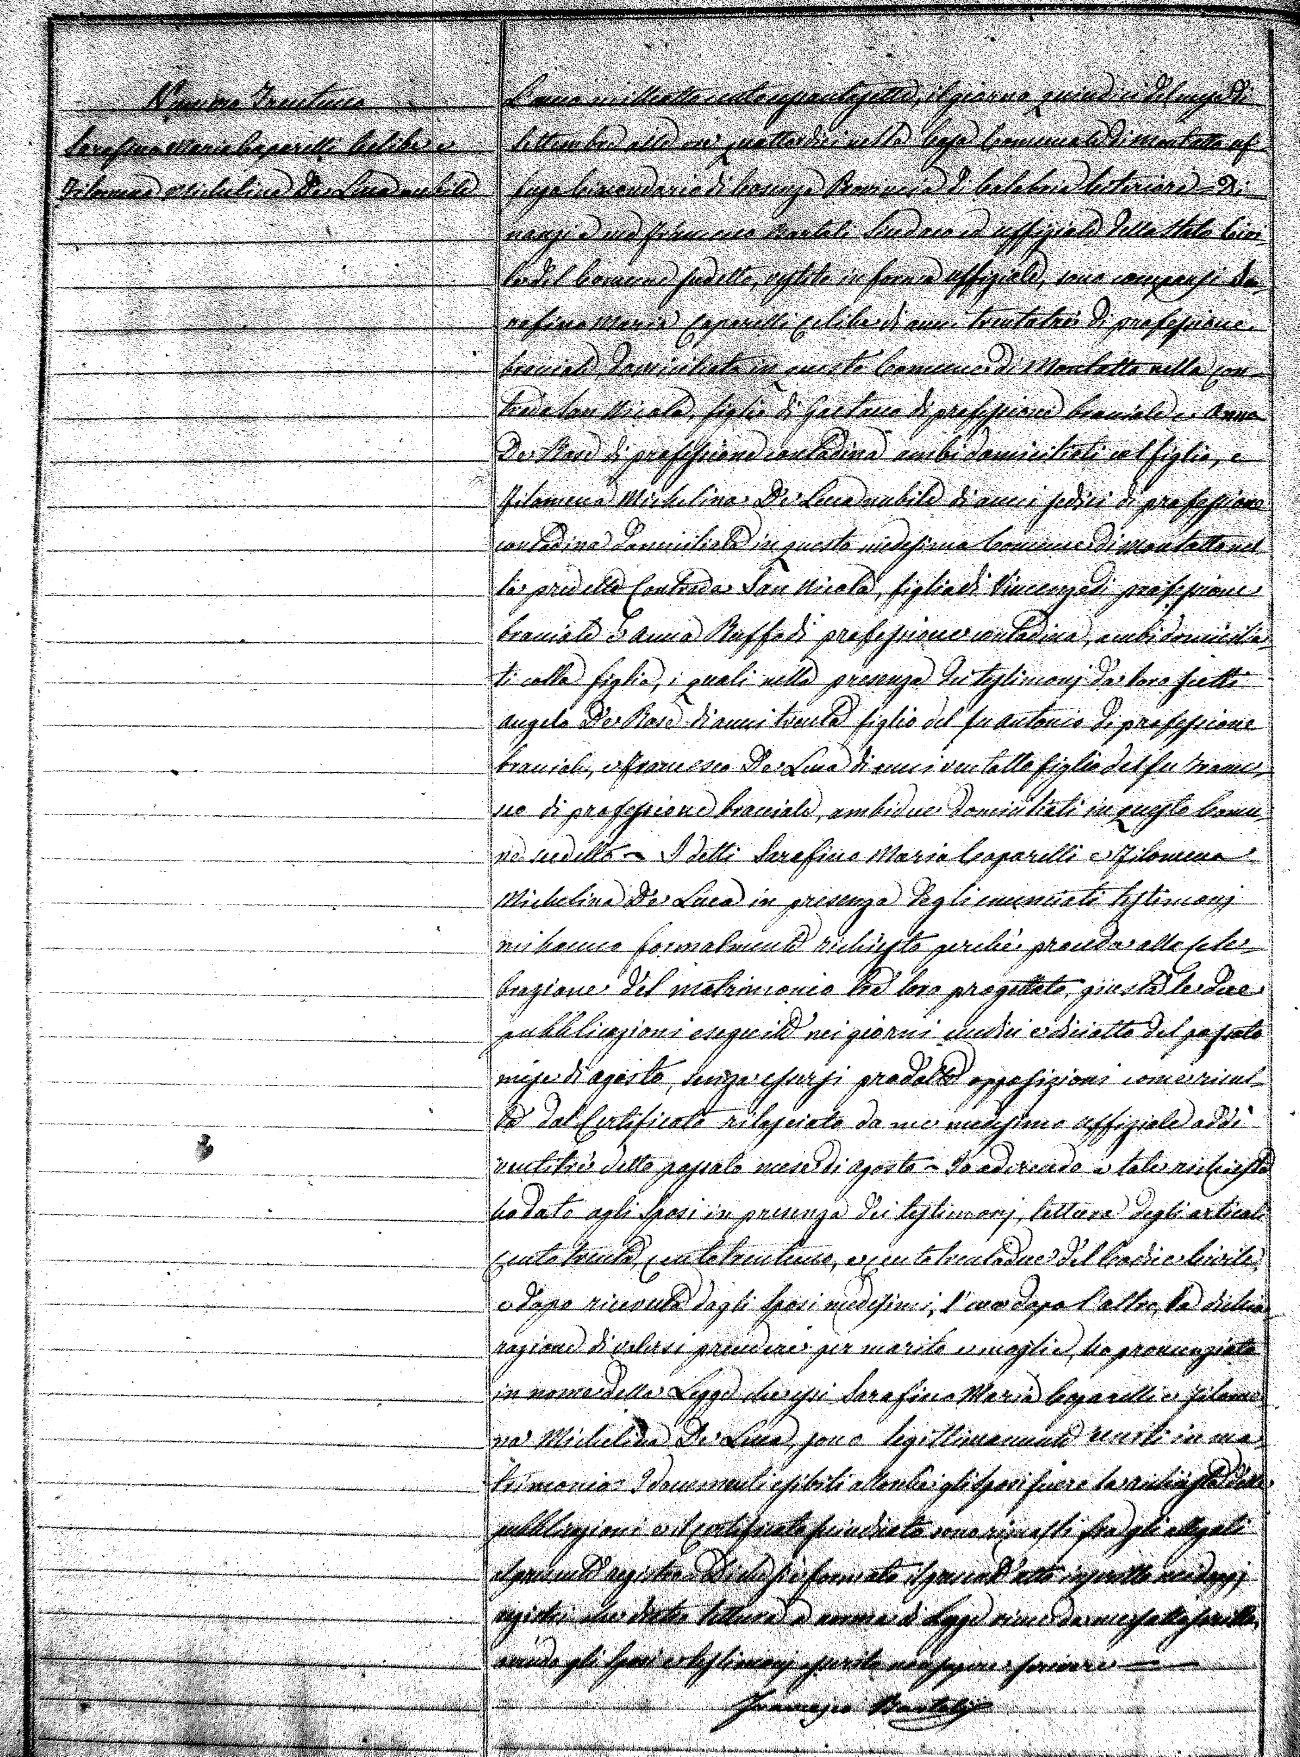 Numero Trentuno
Serafino Maria Caparelli Celibe e
Filomena Michelina De Luca nubile
L'anno milleottocentosessantasette, il giorno quindici del mese di
Settembre alle ore quattordici nella Casa Comunale di Montalto uf-
fugo Circondario di Cosenza Provincia di Calabria Citeriore = Di-
nanzi a me Francesco Bartoli Sindaco ed uffiziale dello Stato Civi-
le del Comune sudetto, vestito in forma uffiziale, sono comparsi Se-
rafino Maria Caparelli Celibe di anni trentatre di professione
bracciale domiciliato in questo Comune di Montalto nella Con-
trada San Nicola, figlio di Gaetano di professione bracciale e Anna
De Rose di professione contadina ambi domiciliati col figlio, e
Filomena Michelina De Luca nubile di anni sedici di professione
contadina domiciliata in questo medesimo Comune di Montalto nel-
la predetta Contrada San Nicola, figlia di Vincenzo di professione
bracciale e Anna Ruffo di professione contadina, ambi domicilia-
ti colla figlia, i quali nella presenza dei testimonj da loro scelti
Angelo De Rose di anni trenta figlio del fu Antonio di professione
bracciale, e Francesco De Luca di anni ventotto figlio del fu
di professione bracciale, ambidue domiciliati in questo Comu-
ne sudetto = I detti Serafino Maria Caparelli e Filomena
Michelina De Luca in presenza degli enunciati testimonj
mi hanno formalmente richiesto perché proceda alla Cele-
brazione del matrimonio tra loro progettato, giusta le due
pubblicazioni eseguite nei giorni undici e diciotto del passato
mese di agosto, senza essersi prodotto opposizioni come risul-
ta dal Certificato rilasciato da me medesimo uffiziale addì
ventitre detto passato mese di agosto = Io aderendo a tale richiesta
ho dato agli Sposi in presenza dei testimonj, lettura degli articoli
Cento trenta, cento trentuno, e cento trentadue del Codice Civile,
e dopo ricevuta dagli Sposi medesimi, l'uno dopo l'altro, la dichia-
razione di volersi prendere per marito e moglie, ho pronunziato
in nome della Legge che essi Serafino Maria Caparelli e Filome-
na Michelina De Luca, sono legittimamente uniti in ma-
trimonio = I documenti esibiti gli Sposi la richiesta delle
pubblicazioni e il certificato sono rimasti fra gli allegati
al presente registro = Di che si è formato il presente atto inscritto nei doppj
registri che dietro lettura a norma di Legge viene da me sottoscritto,
avendo gli Sposi e testimonj asserito non sapere scrivere
Francesco Bartoli